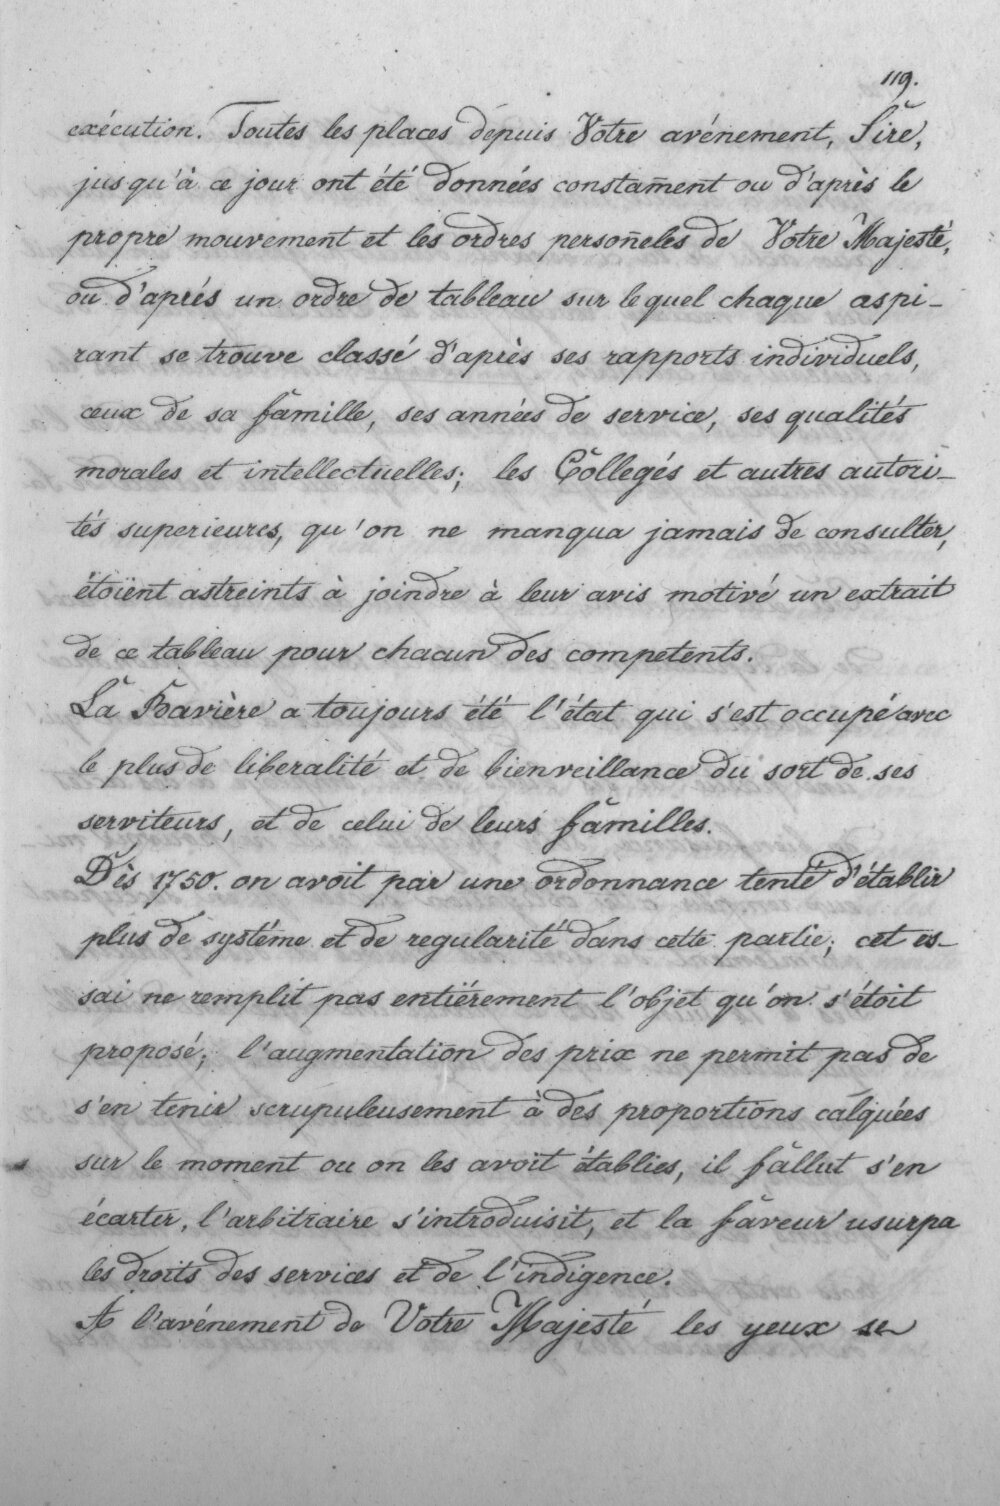 119.
exécution. Toutes les places depuis Votre avénement, Sire,
jusqu'à ce jour ont été données constam̄ent ou d'après le
propre mouvement et les ordres person̄eles de Votre Majesté,
ou d'aprés un ordre de tableau sur lequel chaque aspi-
rant se trouve classé d'après ses rapports individuels,
ceux de sa famille, ses années de service, ses qualités
morales et intellectuelles; les Collegés et autres autori-
tés superieures, qu'on ne manqua jamais de consulter,
étoient astreints à joindre à leur avis motivé un extrait
de ce tableau pour chacun des competents.
La Bavière a toujours été l'état qui s'est occupé avec
le plus de liberalité et de bienveillance du sort de ses
serviteurs, et de celui de leurs familles.
Dès 1750. on avoit par une ordonnance tenté d'établir
plus de systéme et de regularité dans cette partie; cet es-
sai ne remplit pas entiérement l'objet qu'on s'étoit
proposé; l'augmentation des prix ne permit pas de
s'en tenir scrupuleusement à des proportions calquées
sur le moment ou on les avoit établies, il fallut s'en
écarter, l'arbitraire s'introduisit, et la faveur usurpa
les droits des services et de l'indigence.
A l'avénement de Votre Majesté les yeux se